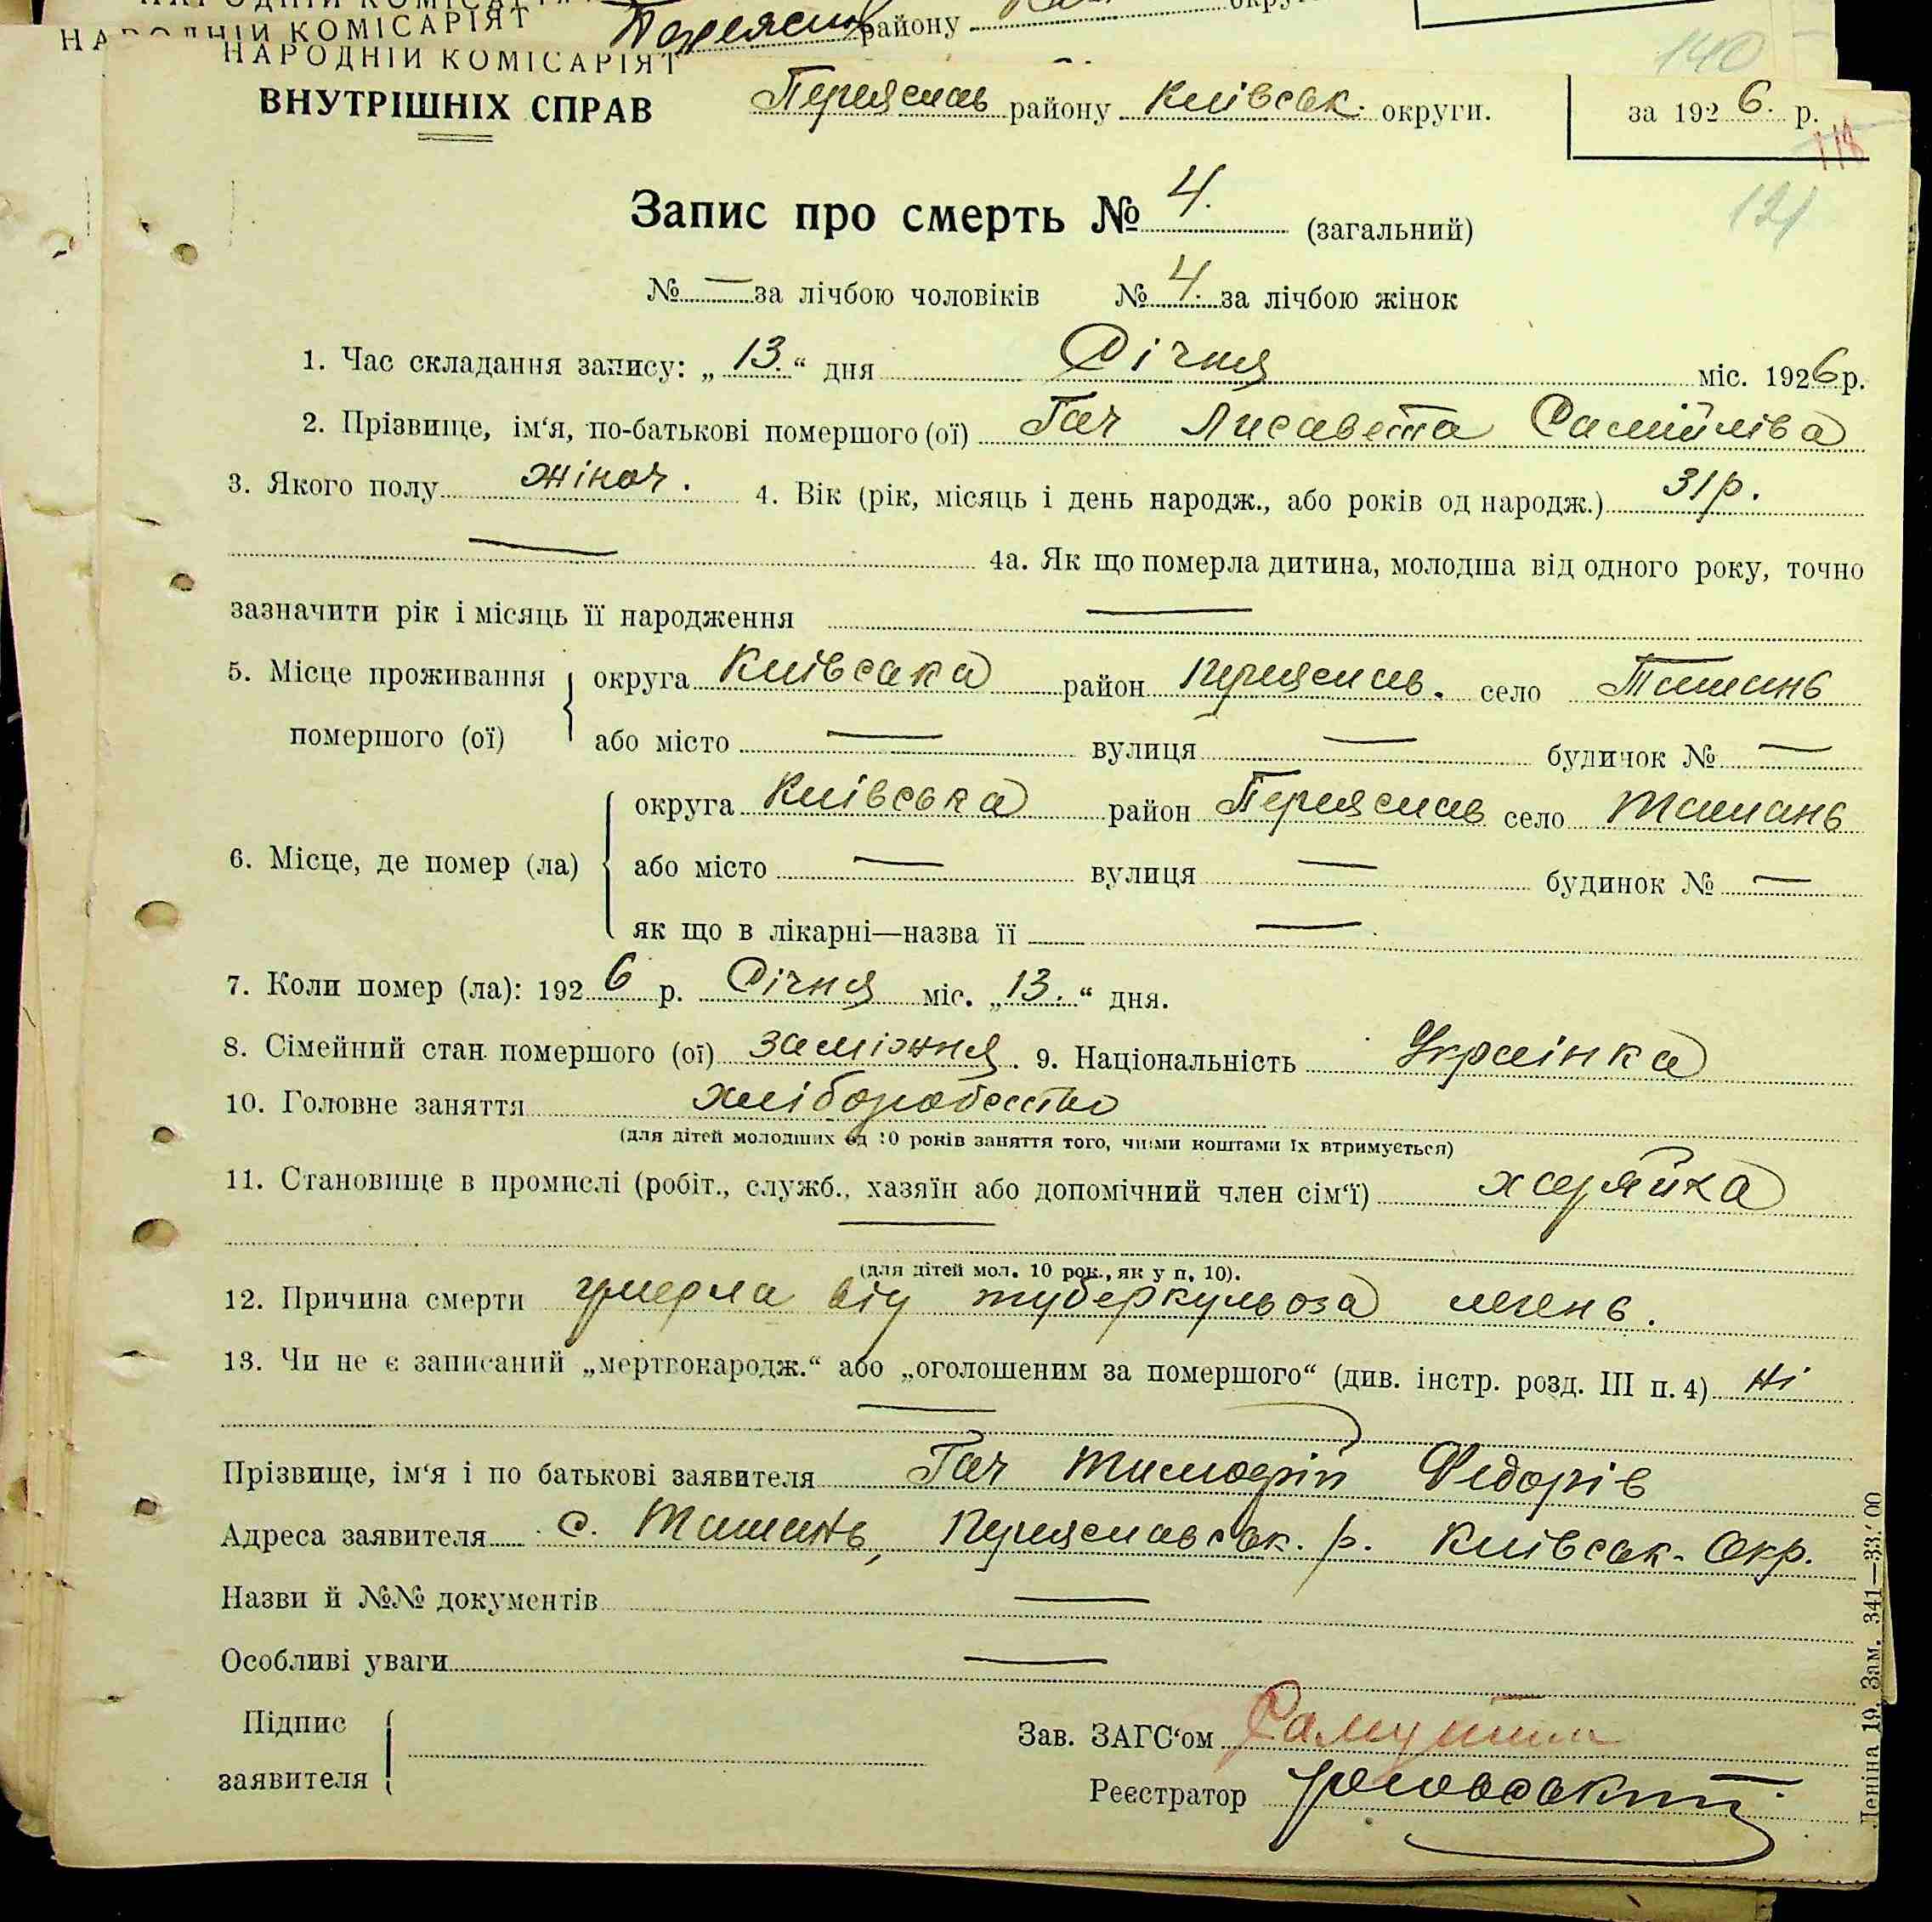 НАРОДНІЙ КОМІСАРІЯТ
Переяслав району
НАРОДНІЙ КОМІСАРІЯТ
140
ВНУТРІШНІХ СПРАВ Переяслав району Київськ. округи. за 1926. р.
118
121
Запис про смерть № 4. (загальний)
№ — за лічбою чоловіків № 4. за лічбою жінок
1. Час складання запису: „13.“ дня Січня міс. 1926 р.
2. Прізвище, ім‘я, по-батькові помершого (ої) Гач Лисавета Самійліва
3. Якого полу жіноч. 4. Вік (рік, місяць і день народж., або років од народж.) 31 р.
— 4а. Як що померла дитина, молодша від одного року, точно
зазначити рік і місяць її народження —
5. Місце проживання помершого (ої) округа Київська район Переяслав. село Ташань
або місто — вулиця — будинок № —
6. Місце, де помер (ла) округа Київська район Переяслав село Ташань
або місто — вулиця — будинок № —
як що в лікарні—назва її —
7. Коли помер (ла): 1926 р. Січня міс. „13.“ дня.
8. Сімейний стан помершого (ої) заміжня. 9. Національність Українка
10. Головне заняття хліборобство
(для дітей молодших од 10 років заняття того, чиїми коштами їх втримується)
11. Становище в промислі (робіт., служб., хазяїн або допомічний член сім‘ї) хазяйка
—
(для дітей мол. 10 рок., як у п. 10).
12. Причина смерти умерла від туберкульоза легень.
13. Чи не є записаний „мертвонародж.“ або „оголошеним за помершого“ (див. інстр. розд. III п. 4) ні
—
Прізвище, ім‘я і по батькові заявителя Гач Тимофій Федорів
Адреса заявителя с. Ташань, Переяславськ. р. Київськ. Окр.
Назви й №№ документів —
Особливі уваги —
Підпис заявителя
Зав. ЗАГС‘ом
Реєстратор
Леніна 19. Зам. 341—33.00